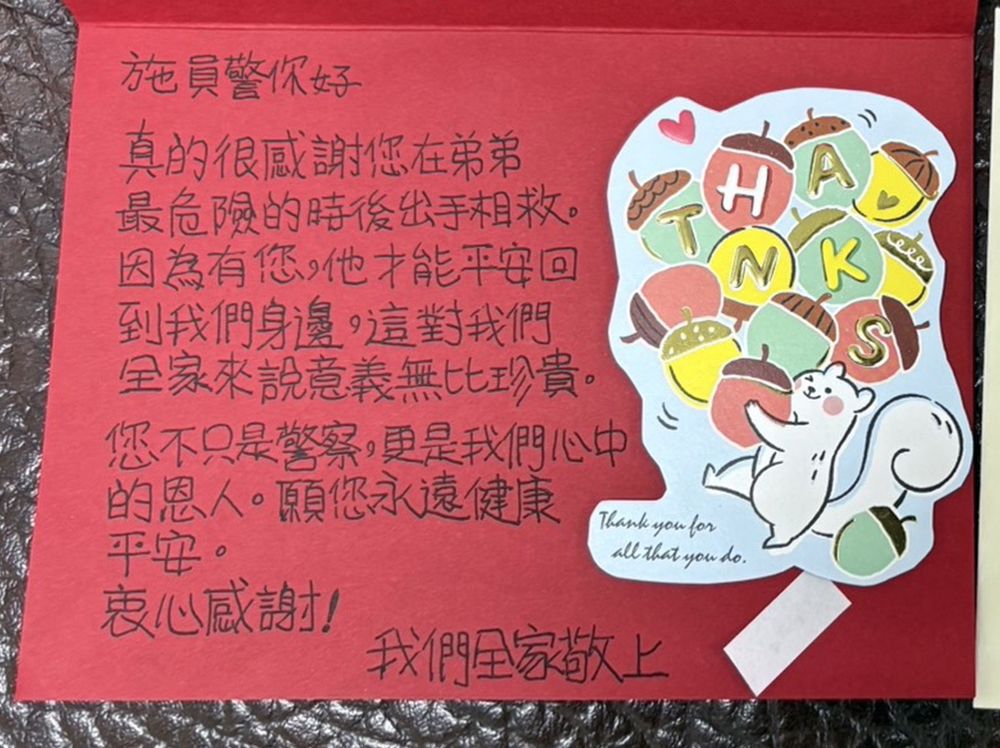 施員警你好
真的很感謝您在弟弟
最危險的時後出手相救。
因為有您，他才能平安回
到我們身邊，這對我們
全家來說意義無比珍貴。
您不只是警察，更是我們心中
的恩人。願您永遠健康
平安。
衷心感謝！
我們全家敬上
THANKS
Thank you for
all that you do.